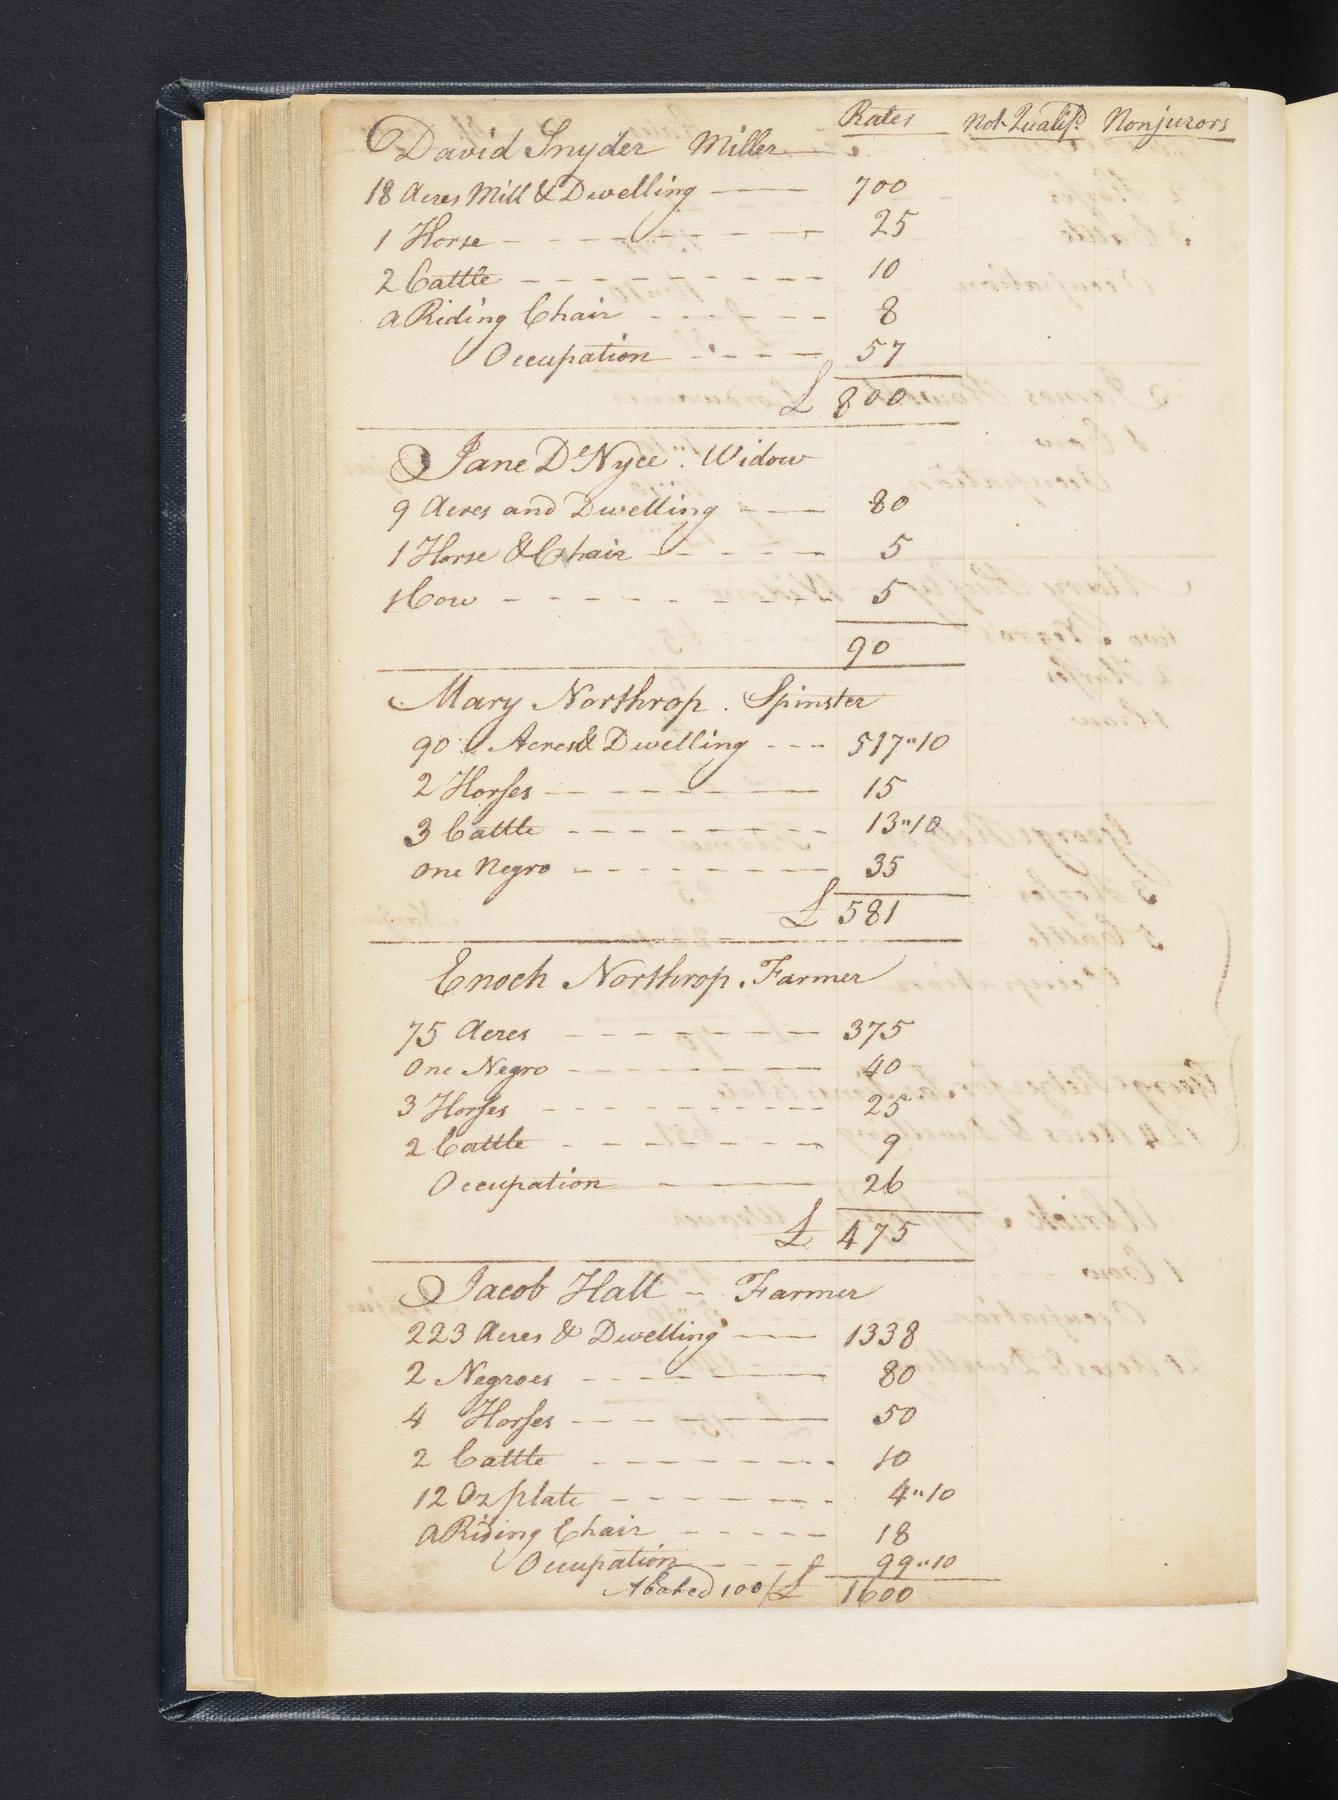 Rates Not Qualifd Nonjurors
David Snyder Miller
18 Acres Mill & Dwelling 700
1 Horse 25
2 Cattle 10
a Riding Chair 8
Occupation 57
£ 800
Jane De Nyce. Widow
9 Acres and Dwelling 80
1 Horse & Chair 5
1 Cow 5
90
Mary Northrop. Spinster
90 Acres & Dwelling 517"10
2 Horses 15
3 Cattle 13"10
One Negro 35
£ 581
Enoch Northrop. Farmer
75 Acres 375
One Negro 40
3 Horses 25
2 Cattle 9
Occupation 26
£ 475
Jacob Hall - Farmer
223 Acres & Dwelling 1338
2 Negroes 80
4 Horses 50
2 Cattle 10
12 Oz plate 4"10
a Riding Chair 18
Occupation 99"10
Abated 100/£ 1600